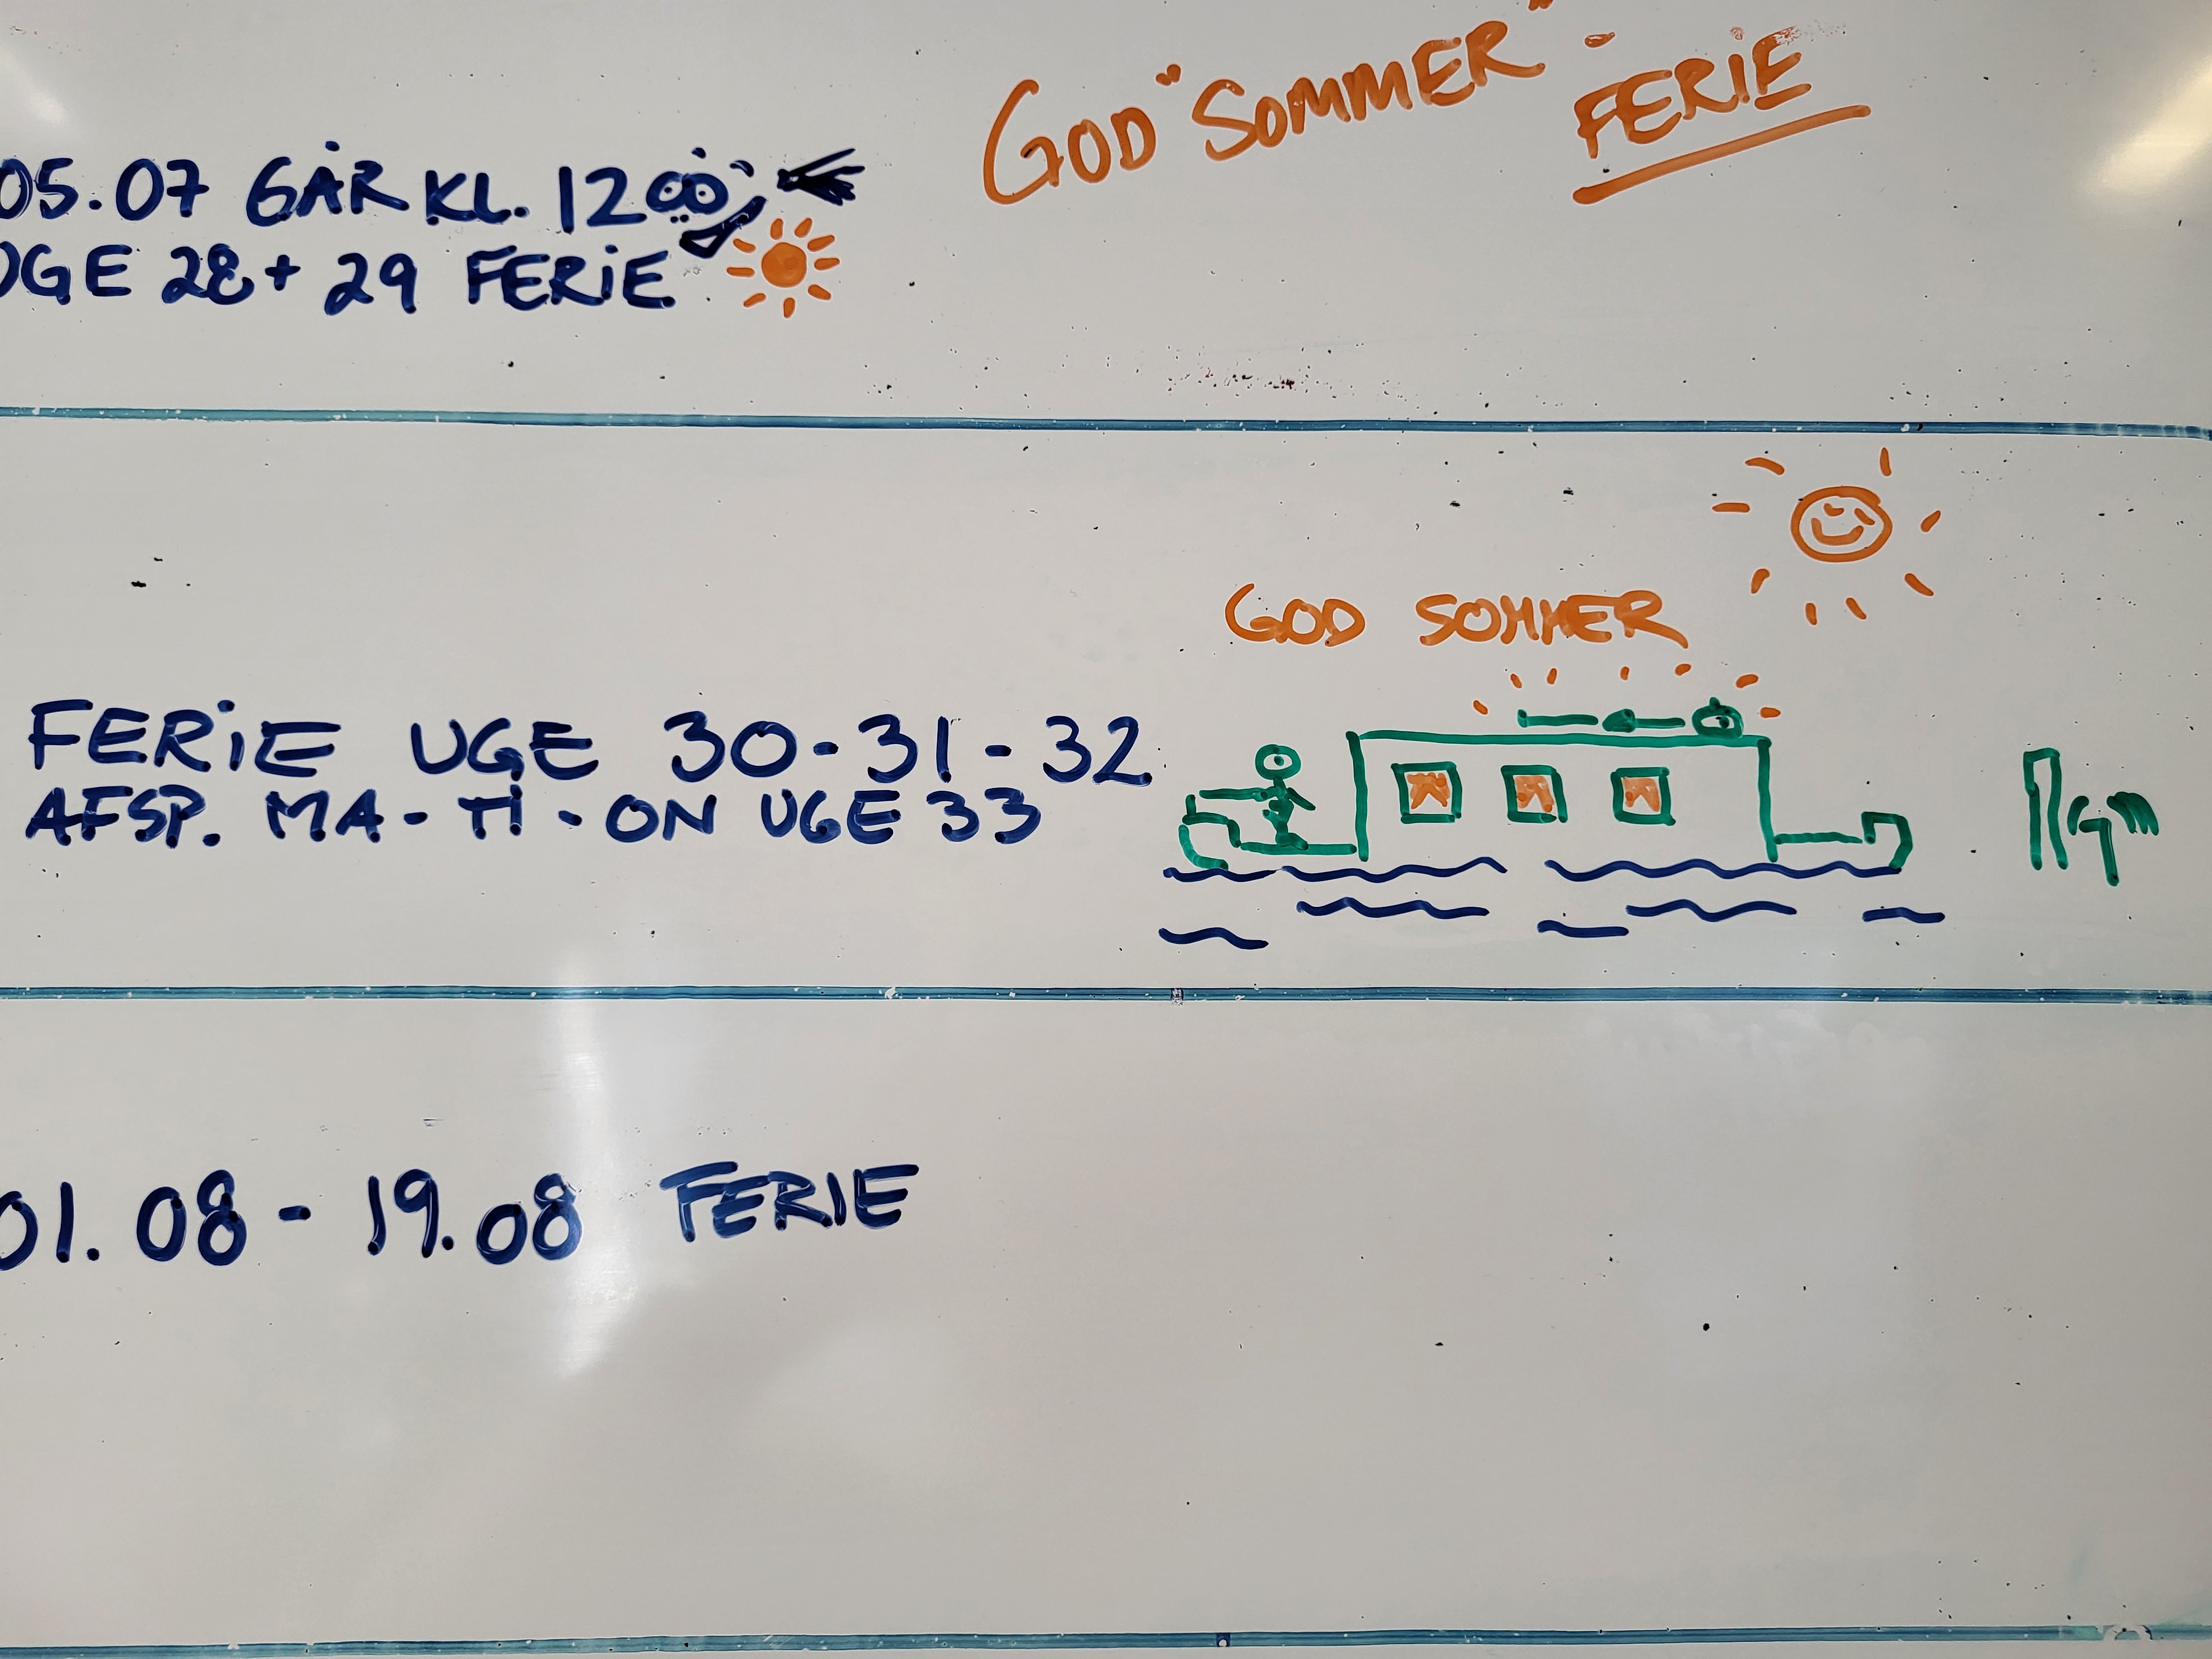 GOD "SOMMER"-
FERIE
05.07 GÅR KL. 1200
UGE 28+29 FERIE
GOD SOMMER
FERIE UGE 30-31-32
AFSP. MA-TI-ON UGE 33
01.08 - 19.08 FERIE